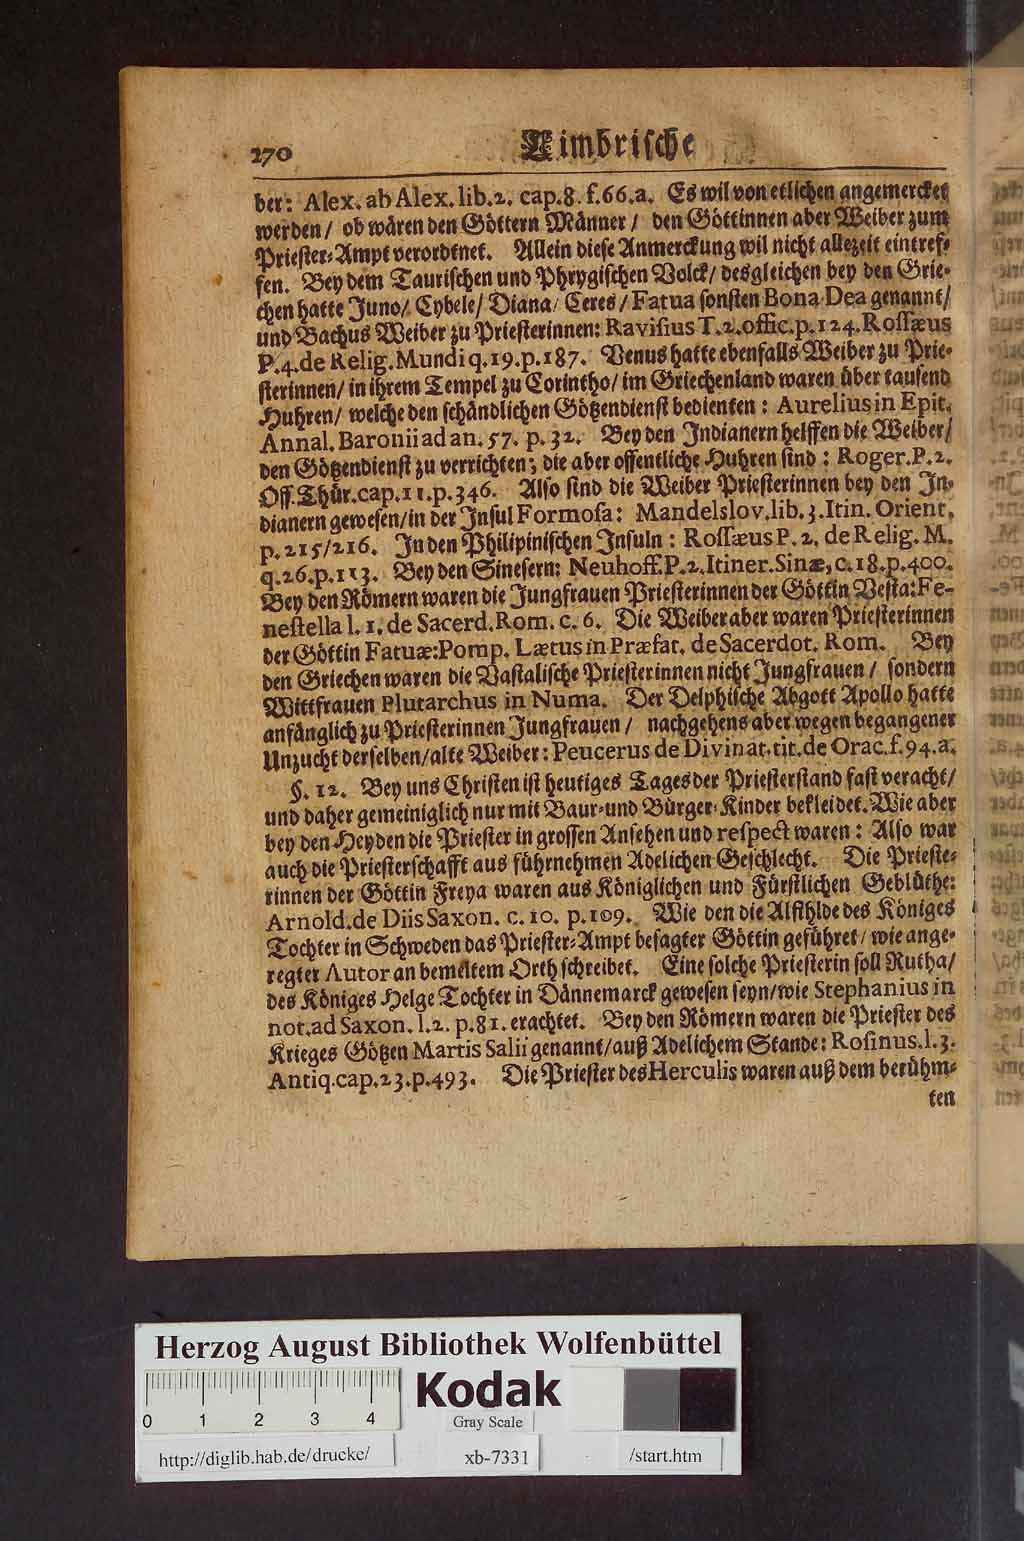 270 Cimbrische
ber: Alex. ab Alex. lib. 2. cap. 8. f. 66. a. Es wil von etlichen angemercket
werden / ob wären den Göttern Männer / den Göttinnen aber Weiber zum
Priester-Ampt verordtnet. Allein diese Anmerckung wil nicht allezeit eintref-
fen. Bey dem Taurischen und Phrygischen Volck / desgleichen bey den Grie-
chen hatte Juno / Cybele / Diana / Ceres / Fatua sonsten Bona Dea genannt /
und Bachus Weiber zu Priesterinnen: Ravisius T. 2. offic. p. 124. Rossæus
P. 4. de Relig. Mundi q. 19. p. 187. Venus hatte ebenfalls Weiber zu Prie-
sterinnen / in ihrem Tempel zu Corintho / im Griechenland waren über tausend
Huhren / welche den schändlichen Götzendienst bedienten: Aurelius in Epit.
Annal. Baronii ad an. 57. p. 32. Bey den Indianern helffen die Weiber /
den Götzendienst zu verrichten; die aber offentliche Huhren sind: Roger. P. 2.
Off. Thür. cap. 11. p. 346. Also sind die Weiber Priesterinnen bey den In-
dianern gewesen / in der Insul Formosa: Mandelslov. lib. 3. Itin. Orient.
p. 215 / 216. In den Philipinischen Insuln: Rossæus P. 2. de Relig. M.
q. 26. p. 113. Bey den Sinesern: Neuhoff. P. 2. Itiner. Sinæ, c. 18. p. 400.
Bey den Römern waren die Jungfrauen Priesterinnen der Göttin Vesta: Fe-
nestella l. 1. de Sacerd. Rom. c. 6. Die Weiber aber waren Priesterinnen
der Göttin Fatuæ: Pomp. Lætus in Præfat. de Sacerdot. Rom. Bey
den Griechen waren die Vastalische Priesterinnen nicht Jungfrauen / sondern
Wittfrauen Plutarchus in Numa. Der Delphische Abgott Apollo hatte
anfänglich zu Priesterinnen Jungfrauen / nachgehens aber wegen begangener
Unzucht derselben / alte Weiber: Peucerus de Divinat. tit. de Orac. f. 94. a.
§. 12. Bey uns Christen ist heutiges Tages der Priesterstand fast veracht /
und daher gemeiniglich nur mit Baur-und Bürger-Kinder bekleidet. Wie aber
bey den Heyden die Priester in grossen Ansehen und respect waren: Also war
auch die Priesterschafft aus führnehmen Adelichen Geschlecht. Die Prieste-
rinnen der Göttin Freya waren aus Königlichen und Fürstlichen Geblüthe:
Arnold. de Diis Saxon. c. 10. p. 109. Wie den die Alfthlde des Königes
Tochter in Schweden das Priester-Ampt besagter Göttin geführet / wie ange-
regter Autor an bemeltem Orth schreibet. Eine solche Priesterin soll Rutha /
des Königes Helge Tochter in Dännemarck gewesen seyn / wie Stephanius in
not. ad Saxon. l. 2. p. 81. erachtet. Bey den Römern waren die Priester des
Krieges Götzen Martis Salii genannt / auß Adelichem Stande: Rosinus. l. 3.
Antiq. cap. 23. p. 493. Die Priester des Herculis waren auß dem berühm-
ten
Herzog August Bibliothek Wolfenbüttel
0 1 2 3 4
Kodak
Gray Scale
http://diglib.hab.de/drucke/ xb-7331 /start.htm